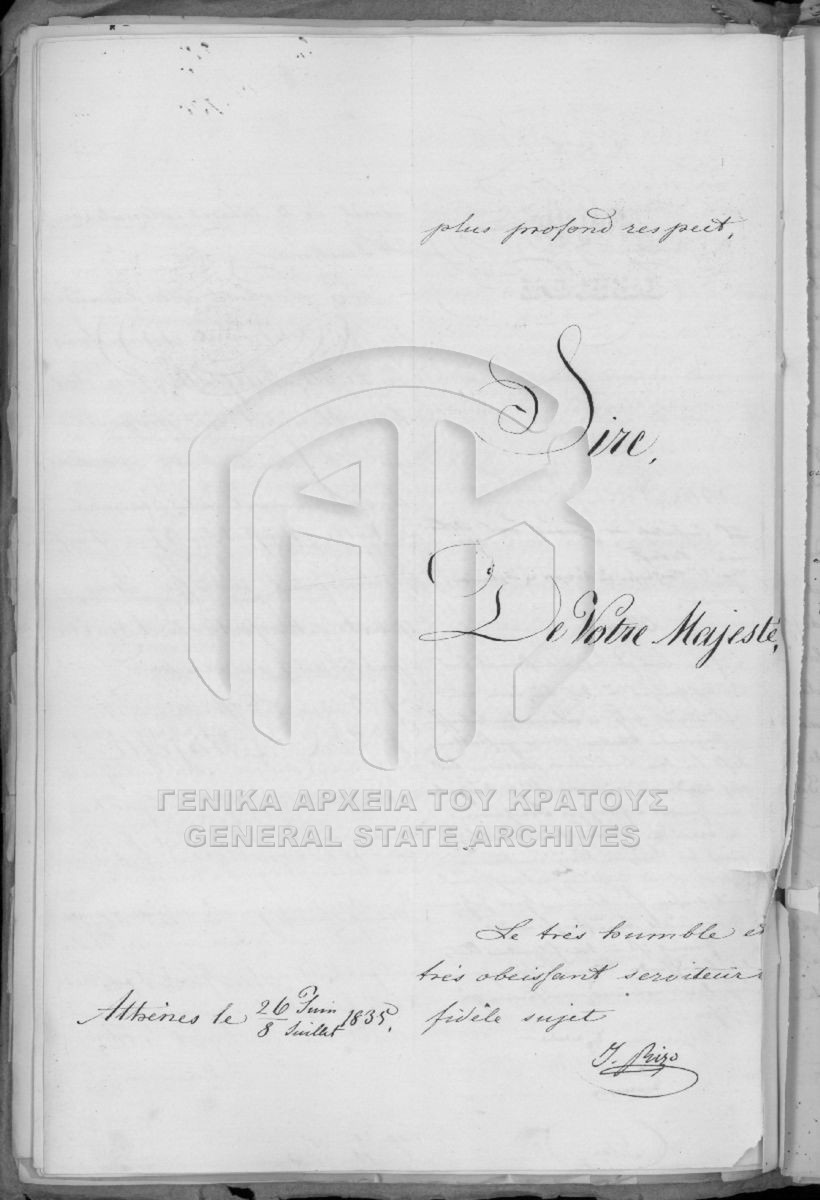 plus profond respect,
Sire,
De Votre Majesté,
ΓΕΝΙΚΑ ΑΡΧΕΙΑ ΤΟΥ ΚΡΑΤΟΥΣ
GENERAL STATE ARCHIVES
Le très humble et
très obeissant serviteur
Athènes le 26 Juin / 8 Juillet 1835. fidèle sujet
J. Rizo